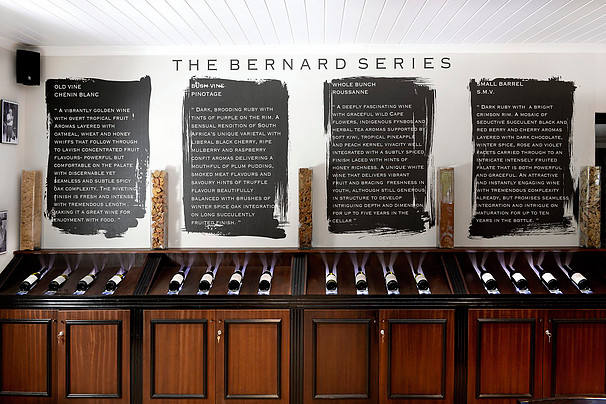 THE BERNARD SERIES
OLD VINE
CHENIN BLANC
" A VIBRANTLY GOLDEN WINE
WITH OVERT TROPICAL FRUIT
AROMAS LAYERED WITH
OATMEAL, WHEAT AND HONEY
WHIFFS THAT FOLLOW THROUGH
TO LAVISH CONCENTRATED FRUIT
FLAVOURS- POWERFUL BUT
COMFORTABLE ON THE PALATE
WITH DISCERNABLE YET
SEAMLESS AND SUBTLE SPICY
OAK COMPLEXITY. THE RIVETING
FINISH IS FRESH AND INTENSE
WITH TREMENDOUS LENGTH
MAKING IT A GREAT WINE FOR
ENJOYMENT WITH FOOD. "
BUSH VINE
PINOTAGE
" DARK, BROODING RUBY WITH
TINTS OF PURPLE ON THE RIM. A
SENSUAL RENDITION OF SOUTH
AFRICA'S UNIQUE VARIETAL WITH
LIBERAL BLACK CHERRY, RIPE
MULBERRY AND RASPBERRY
CONFIT AROMAS DELIVERING A
MOUTHFUL OF PLUM PUDDING,
SMOKED MEAT FLAVOURS AND
SAVOURY HINTS OF TRUFFLE
FLAVOUR BEAUTIFULLY
BALANCED WITH BRUSHES OF
WINTER SPICE OAK INTEGRATION
ON LONG SUCCULENTLY
FRUITED FINISH. "
WHOLE BUNCH
ROUSSANNE
" A DEEPLY FASCINATING WINE
WITH GRACEFUL WILD CAPE
FLOWERS, INDIGENOUS FYNBOS AND
HERBAL TEA AROMAS SUPPORTED BY
SOFT KIWI, TROPICAL PINEAPPLE
AND PEACH KERNEL VIVACITY WELL
KNIT TOGETHER WITH A SUBTLE SPICED
FINISH LACED WITH HINTS OF
HONEY RICHNESS. A UNIQUE WINE
THAT DELIVERS VIBRANT
FRUIT AND BRACING FRESHNESS IN
YOUTH, ALTHOUGH STILL GENEROUS
IN STRUCTURE TO DEVELOP
INTRIGUING DEPTH AND DIMENSION
FOR UP TO FIVE YEARS IN THE
CELLAR "
SMALL BARREL
S.M.V.
" DARK RUBY WITH A BRIGHT
CRIMSON RIM. A MOSAIC OF
SEDUCTIVE SUCCULENT BLACK AND
RED BERRY AND CHERRY AROMAS
LAYERED WITH DARK CHOCOLATE,
WINTER SPICE, ROSE AND VIOLET
FACETS CARRIED THROUGH TO AN
INTRICATE INTENSELY FRUITED
PALATE THAT IS BOTH POWERFUL
AND GRACEFUL. AN ATTRACTIVE
AND INSTANTLY ENGAGING WINE
WITH TREMENDOUS COMPLEXITY
ALREADY, BUT PROMISES SEAMLESS
INTEGRATION AND INTRIGUE ON
MATURATION FOR UP TO TEN
YEARS IN THE BOTTLE. "